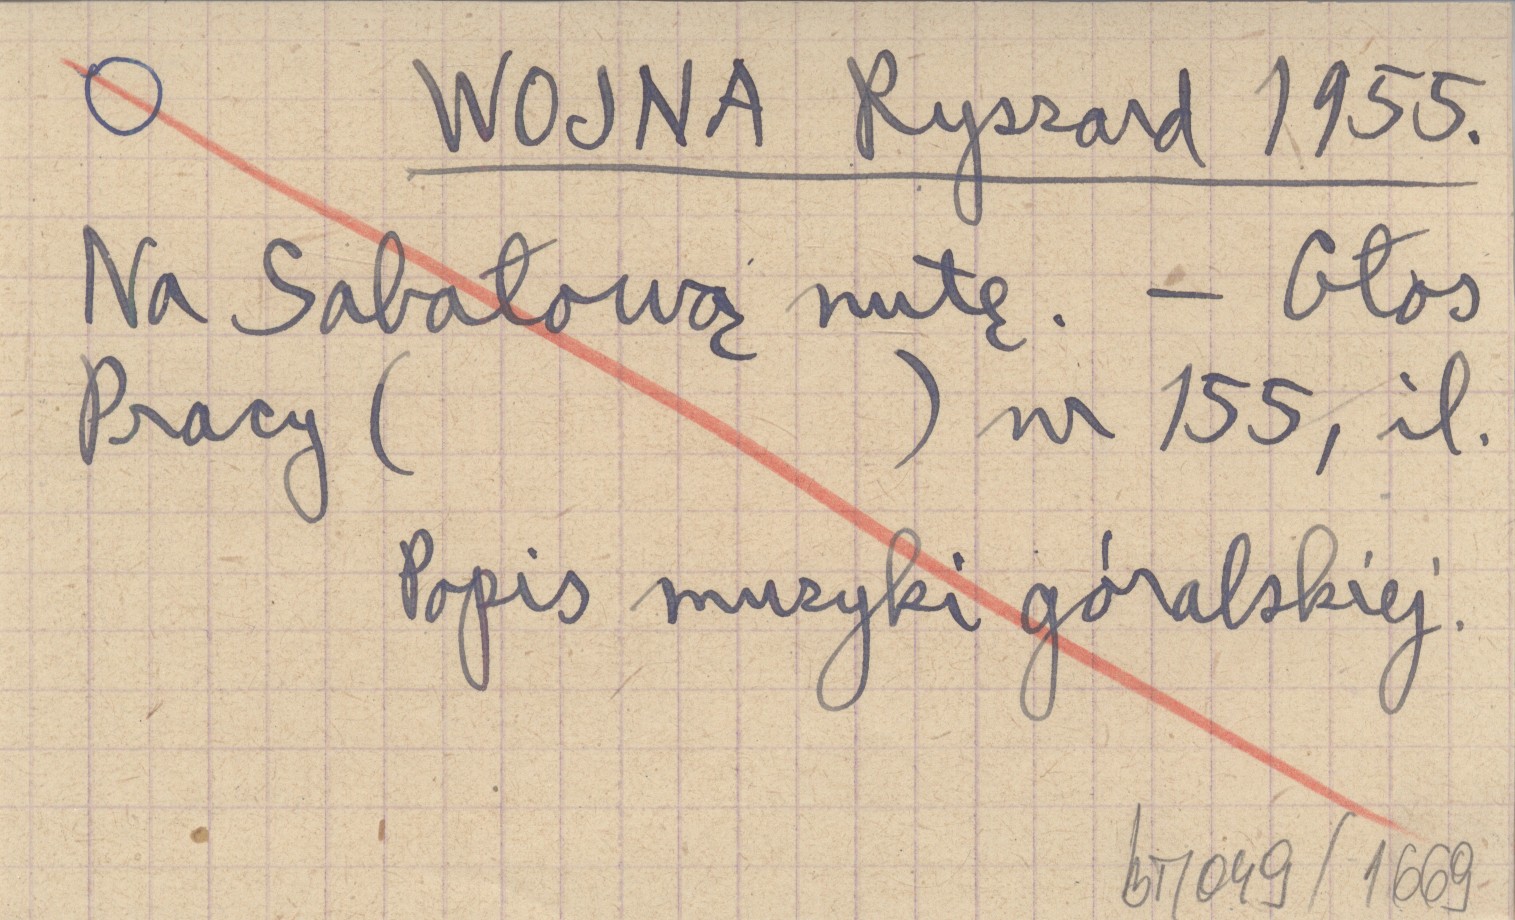 WOJNA Ryszard 1955.
Na Sabałową nutę. — Głos
Pracy ( ) nr 155, il.
Popis muzyki góralskiej.
BT/049/1669